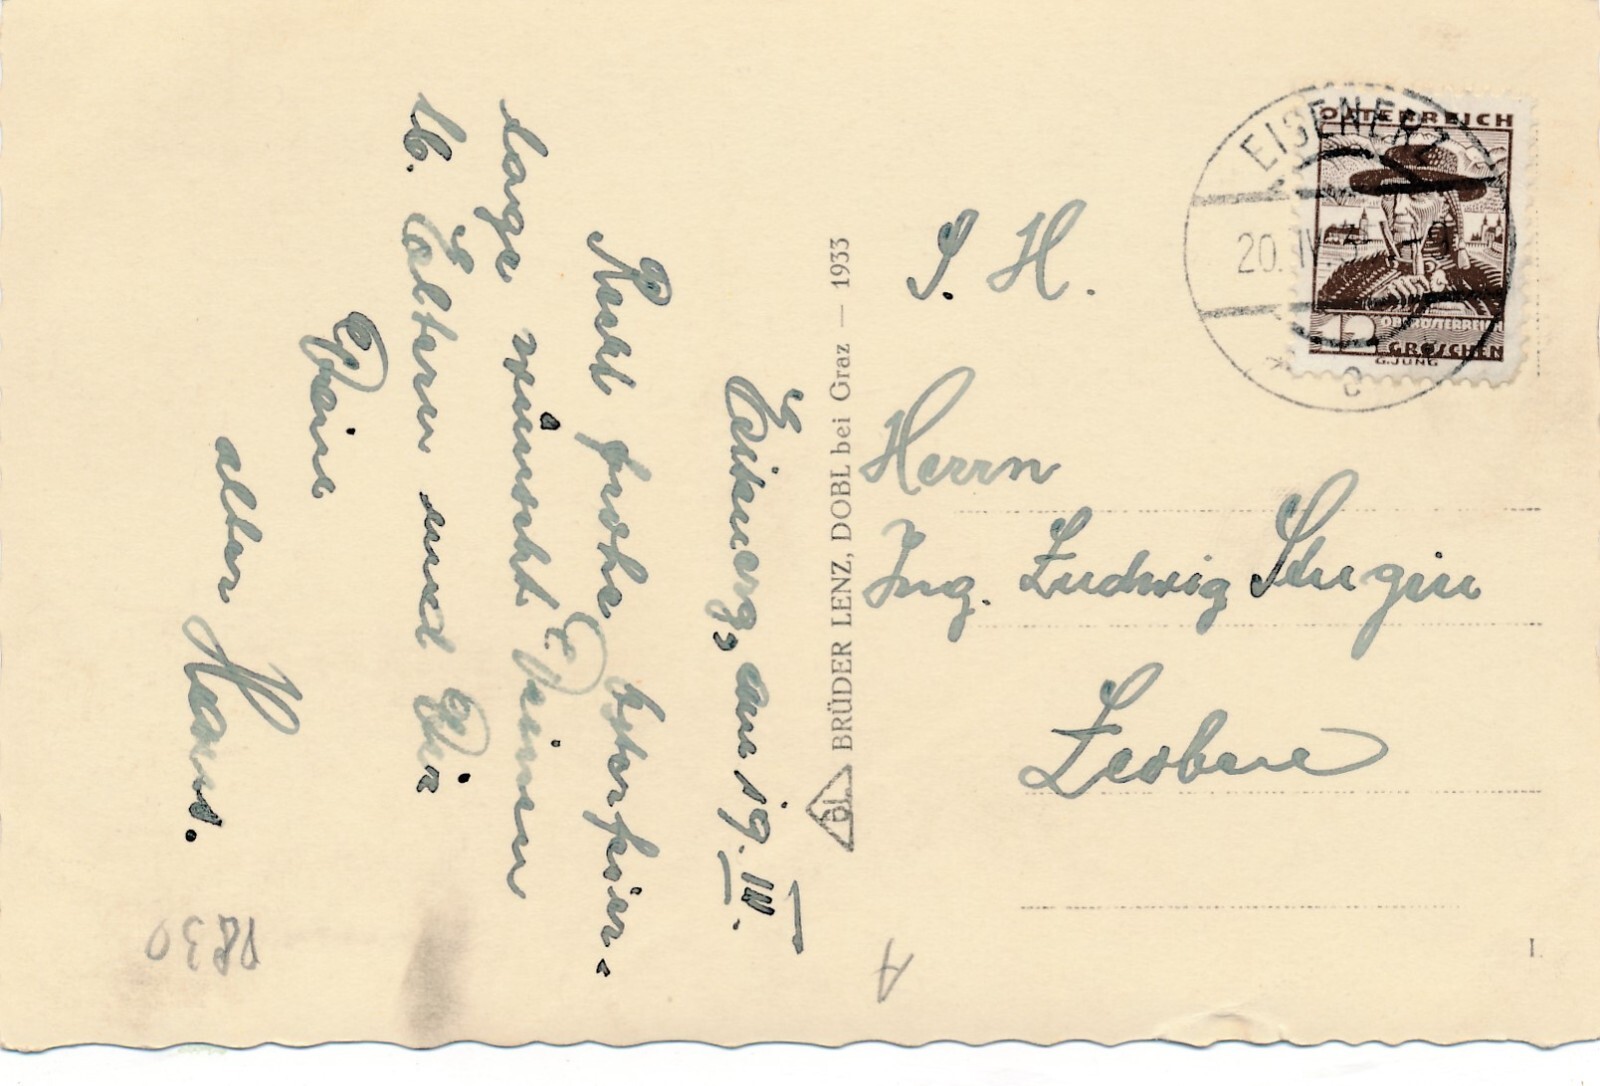 Eisenerz, am 19. IV.
Recht frohe Osterfeier-
tage wünscht Deinen
lb. Eltern und Dir
Dein
alter Hans.
BRÜDER LENZ, DOBL bei Graz — 1933
BL
ÖSTERREICH
OBERÖSTERREICH
12 GROSCHEN
G.JUNG
EISENERZ
20. IV. 3
* c
S. H.
Herrn
Ing. Ludwig
Leoben
I.
A